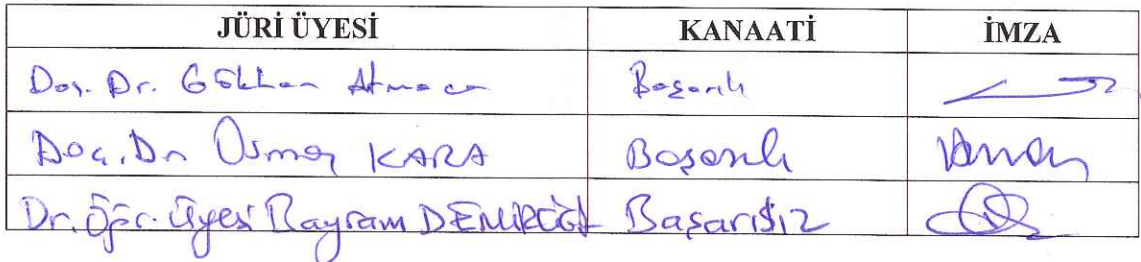 JÜRİ ÜYESİ KANAATİ İMZA
Doç. Dr. Gökhan Atmaca Başarılı
Doç. Dr. Osman KARA Başarılı
Dr. Öğr. Üyesi Bayram Başarısız